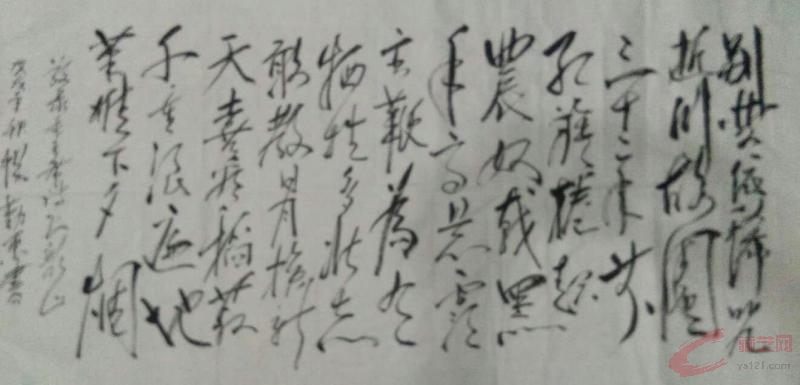 别梦依稀咒
逝川故园
三十二年前
红旗卷起
农奴戟黑
手高悬霸
主鞭为有
牺牲多壮志
敢教日月换新
天喜看稻菽
千重浪遍地
英雄下夕烟
毛主席诗到韶山
书
艺网
ys121.com